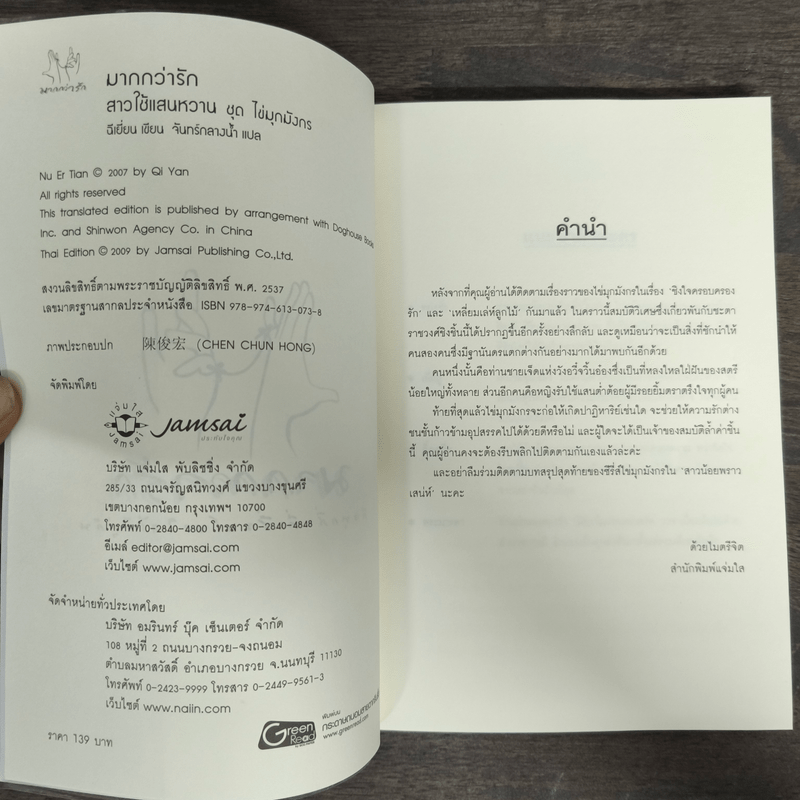 มากกว่ารัก
มากกว่ารัก
สาวใช้แสนหวาน ชุด ไข่มุกมังกร
ฉีเยี่ยน เขียน จันทร์กลางน้ำ แปล
Nu Er Tian © 2007 by Qi Yan
All rights reserved
This translated edition is published by arrangement with Doghouse Books
Inc. and Shinwon Agency Co. in China
Thai Edition © 2009 by Jamsai Publishing Co.,Ltd.
สงวนลิขสิทธิ์ตามพระราชบัญญัติลิขสิทธิ์ พ.ศ. 2537
เลขมาตรฐานสากลประจำหนังสือ ISBN 978-974-613-073-8
ภาพประกอบปก 陳俊宏 (CHEN CHUN HONG)
จัดพิมพ์โดย
แจ่มใส
Jamsai
Jamsai
ประทับใจคุณ
บริษัท แจ่มใส พับลิชชิ่ง จำกัด
285/33 ถนนจรัญสนิทวงศ์ แขวงบางขุนศรี
เขตบางกอกน้อย กรุงเทพฯ 10700
โทรศัพท์ 0-2840-4800 โทรสาร 0-2840-4848
อีเมล์ editor@jamsai.com
เว็บไซต์ www.jamsai.com
จัดจำหน่ายทั่วประเทศโดย
บริษัท อมรินทร์ บุ๊ค เซ็นเตอร์ จำกัด
108 หมู่ที่ 2 ถนนบางกรวย-จงถนอม
ตำบลมหาสวัสดิ์ อำเภอบางกรวย จ.นนทบุรี 11130
โทรศัพท์ 0-2423-9999 โทรสาร 0-2449-9561-3
เว็บไซต์ www.naiin.com
ราคา 139 บาท
Green
Read
พิมพ์บน
กระดาษถนอมสายตา
www.greenread.com
คำนำ
หลังจากที่คุณผู้อ่านได้ติดตามเรื่องราวของไข่มุกมังกรในเรื่อง ‘ชิงใจครอบครอง
รัก’ และ ‘เหลี่ยมเล่ห์ลูกไม้’ กันมาแล้ว ในคราวนี้สมบัติวิเศษซึ่งเกี่ยวพันกับชะตา
ราชวงศ์ชิงชิ้นนี้ได้ปรากฏขึ้นอีกครั้งอย่างลึกลับ และดูเหมือนว่าจะเป็นสิ่งที่ชักนำให้
คนสองคนซึ่งมีฐานันดรแตกต่างกันอย่างมากได้มาพบกันอีกด้วย
คนหนึ่งนั้นคือท่านชายเจ็ดแห่งวังอวี้จวิ้นอ๋องซึ่งเป็นที่หลงใหลใฝ่ฝันของสตรี
น้อยใหญ่ทั้งหลาย ส่วนอีกคนคือหญิงรับใช้แสนต่ำต้อยผู้มีรอยยิ้มตราตรึงใจทุกผู้คน
ท้ายที่สุดแล้วไข่มุกมังกรจะก่อให้เกิดปาฏิหาริย์เช่นใด จะช่วยให้ความรักต่าง
ชนชั้นก้าวข้ามอุปสรรคไปได้ด้วยดีหรือไม่ และผู้ใดจะได้เป็นเจ้าของสมบัติล้ำค่าชิ้น
นี้ คุณผู้อ่านคงจะต้องรีบพลิกไปติดตามกันเองแล้วล่ะค่ะ
และอย่าลืมร่วมติดตามบทสรุปสุดท้ายของซีรี่ส์ไข่มุกมังกรใน ‘สาวน้อยพราว
เสน่ห์’ นะคะ
ด้วยไมตรีจิต
สำนักพิมพ์แจ่มใส